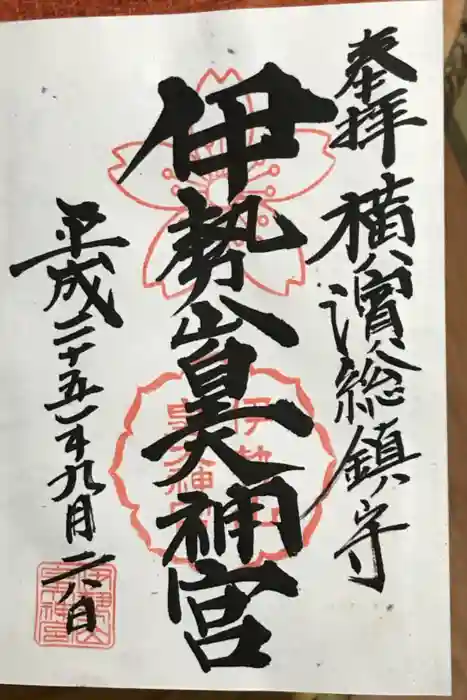 奉拝
横濱総鎮守
伊勢山皇大神宮
平成二十五年九月二八日